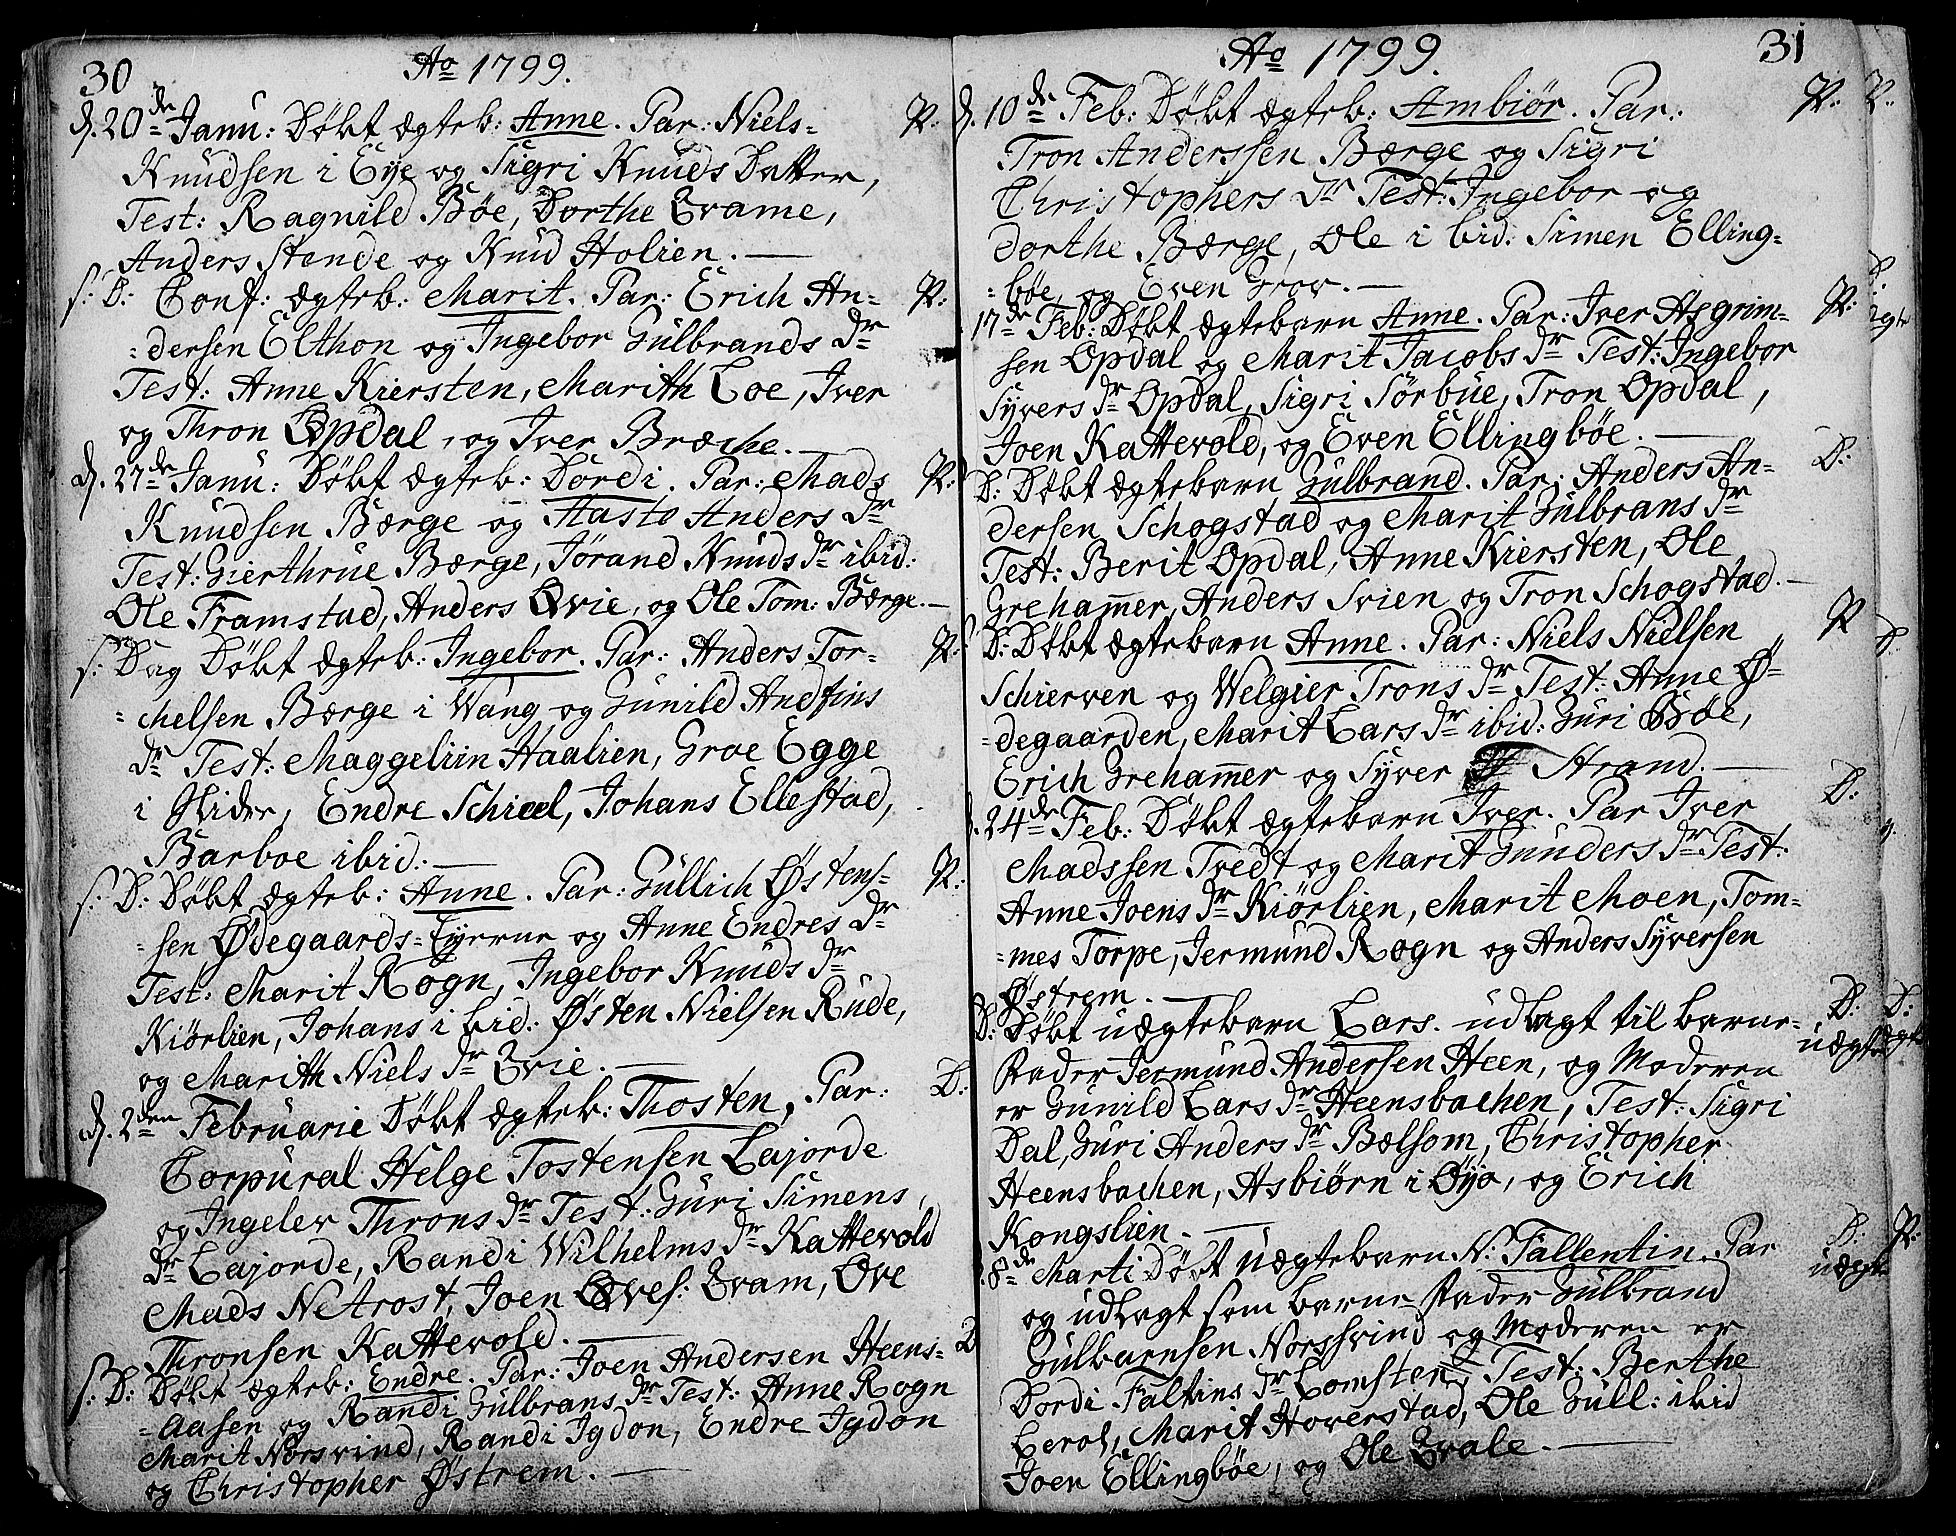 30 Ao 1799.
d. 20de Janu: Døbt ægteb: Anne. Par: Niels P:
Knudsen i Eye og Sigri Knuds Datter,
Test: Ragnild Bøe, Dorthe Qvame,
Anders Stende og Knud Holien.
s: D: Conf: ægteb: Marit. Par: Erich An- P:
-dersen Elthon og Ingebor Gulbrands Dr
Test: Anne Kiersten, Marith Loe, Iver
og Thron Opdal, og Iver Bræche.
d. 27de Janu: Døbt ægteb: Dordi. Par: Mads P:
Knudsen Bærge og Aaste Anders Dr
Test: Gierthrue Bærge, Jørand Knuds Dr ibid:
Ole Framstad, Anders Qvie, og Ole Tom: Bærge.
s: Dag Døbt ægteb: Ingebor. Par: Anders Tor- P:
-chelsen Bærge i Wang og Gunild Andfins
Dr Test: Maggeliin Haalien, Groe Egge
i Slidre, Endre Schieel, Johans Ellestad,
Barboe ibid:
s: D: Døbt ægteb: Anne. Par: Gullich Østens- P:
-sen Ødegaards-Eyerne og Anne Endres Dr
Test: Marit Rogn, Ingebor Knuds Dr
Kiørlien, Johans i bid: Østen Nielsen Rude,
og Marith Niels Dr Qvie.
d. 2den Februarie Døbt ægteb: Thosten, Par: D:
Corpural Helge Tostensen Lajorde
og Ingeler Throns Dr Test: Guri Simens
Dr Lajorde, Randi Wilhelms Dr Kattevold
Mads Netrost, Joen Oves: Qvam, Ove
Thronsen Kattevold.
s: D: Døbt ægteb: Endre. Par: Joen Andersen Heens- D
-aasen og Randi Gulbrans Dr Test: Anne Rogn
Marit Norsvind, Randi Igdon, Endre Igdon
og Christopher Østrem.
Ao 1799. 31
d. 10de Feb: Døbt ægteb: Ambiør. Par: P:
Tron Anderssen Bærge og Sigri
Christophers Dr Test: Ingebor og
Dorthe Bærge, Ole i bid: Simen Elling-
-bøe, og Even Grov.
17de Feb: Døbt ægtebarn Anne. Par: Iver Asgrim- P:
sen Opdal og Marit Jacobs Dr Test: Ingebor
Syvers Dr Opdal, Sigri Sørbue, Tron Opdal,
Joen Kattevold, og Even Ellingbøe.
D: Døbt ægtebarn Gulbrand. Par: Anders An- D:
dersen Schogstad og Marit Gulbrans Dr
Test: Berit Opdal, Anne Kiersten, Ole
Grehamer, Anders Svien og Tron Schogstad.
D: Døbt ægtebarn Anne. Par: Niels Nielsen P
Schierven og Welgier Trons Dr Test: Anne Ø-
-degaarden, Marit Lars Dr ibid: Guri Bøe,
Erich Grehamer og Syver Strand.
d. 24de Feb: Døbt ægtebarn Iver. Par Iver D:
Madssen Tvedt og Marit Gunders Dr Test:
Anne Joens Dr Kiørlien, Marit Moen, Tom-
-mes Torpe, Jermund Rogn og Anders Syversen
Østrem.
D: Døbt uægtebarn Lars. udlagt til barne- D:
Fader Jermund Andersen Heen, og Moderen uægte
er Gunild Lars Dr Heensbachen, Test: Sigri
Dal, Guri Anders Dr Bælsom, Christopher
Heensbachen, Asbiørn i Øye, og Erich
Kongslien.
8de Marti Døbt uægtebarn N: Fallentin. Par D:
og udlagt som barne Fader Gulbrand uægte
Gulbarnsen Norssvind og Moderen er
Dordi Faltins Dr Lomsten, Test: Berthe
Marit Hoverstad, Ole Gull: ibid
Joen Ellingbøe, og Ole Qvale.